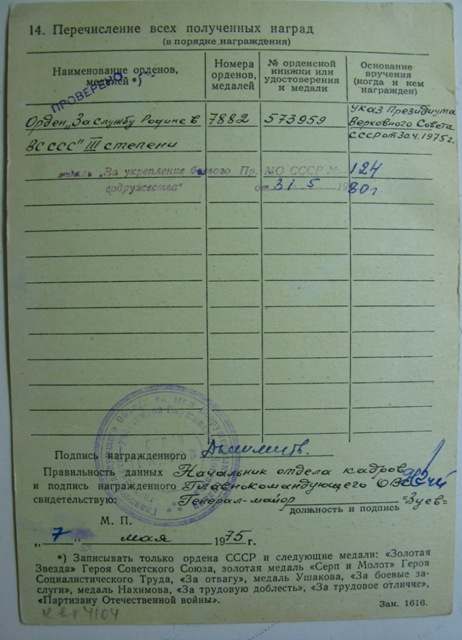 14. Перечисление всех полученных наград
(в порядке награждения)
Наименование орденов, медалей *)
Номера орденов, медалей
№ орденской книжки или удостоверения к медали
Основание вручения (когда и кем награжден)
ПРОВЕРЕНО
Орден „За службу Родине в ВС СССР" III степени
7882
573959
Указ Президиума Верховного Совета СССР от 30.4.1975 г.
медаль „За укрепление боевого Пр. МО СССР № 124
содружества" от 31 5 1980 г.
Подпись награжденного
Правильность данных Начальник отдела кадров
и подпись награжденного Главнокомандующего ОВС
свидетельствую: Генерал-майор =Зуев=
должность и подпись
М. П.
„ 7 " мая 1975 г.
*) Записывать только ордена СССР и следующие медали: «Золотая
Звезда» Героя Советского Союза, золотая медаль «Серп и Молот» Героя
Социалистического Труда, «За отвагу», медаль Ушакова, «За боевые за-
слуги», медаль Нахимова, «За трудовую доблесть», «За трудовое отличие»,
«Партизану Отечественной войны».
Зак. 1616.